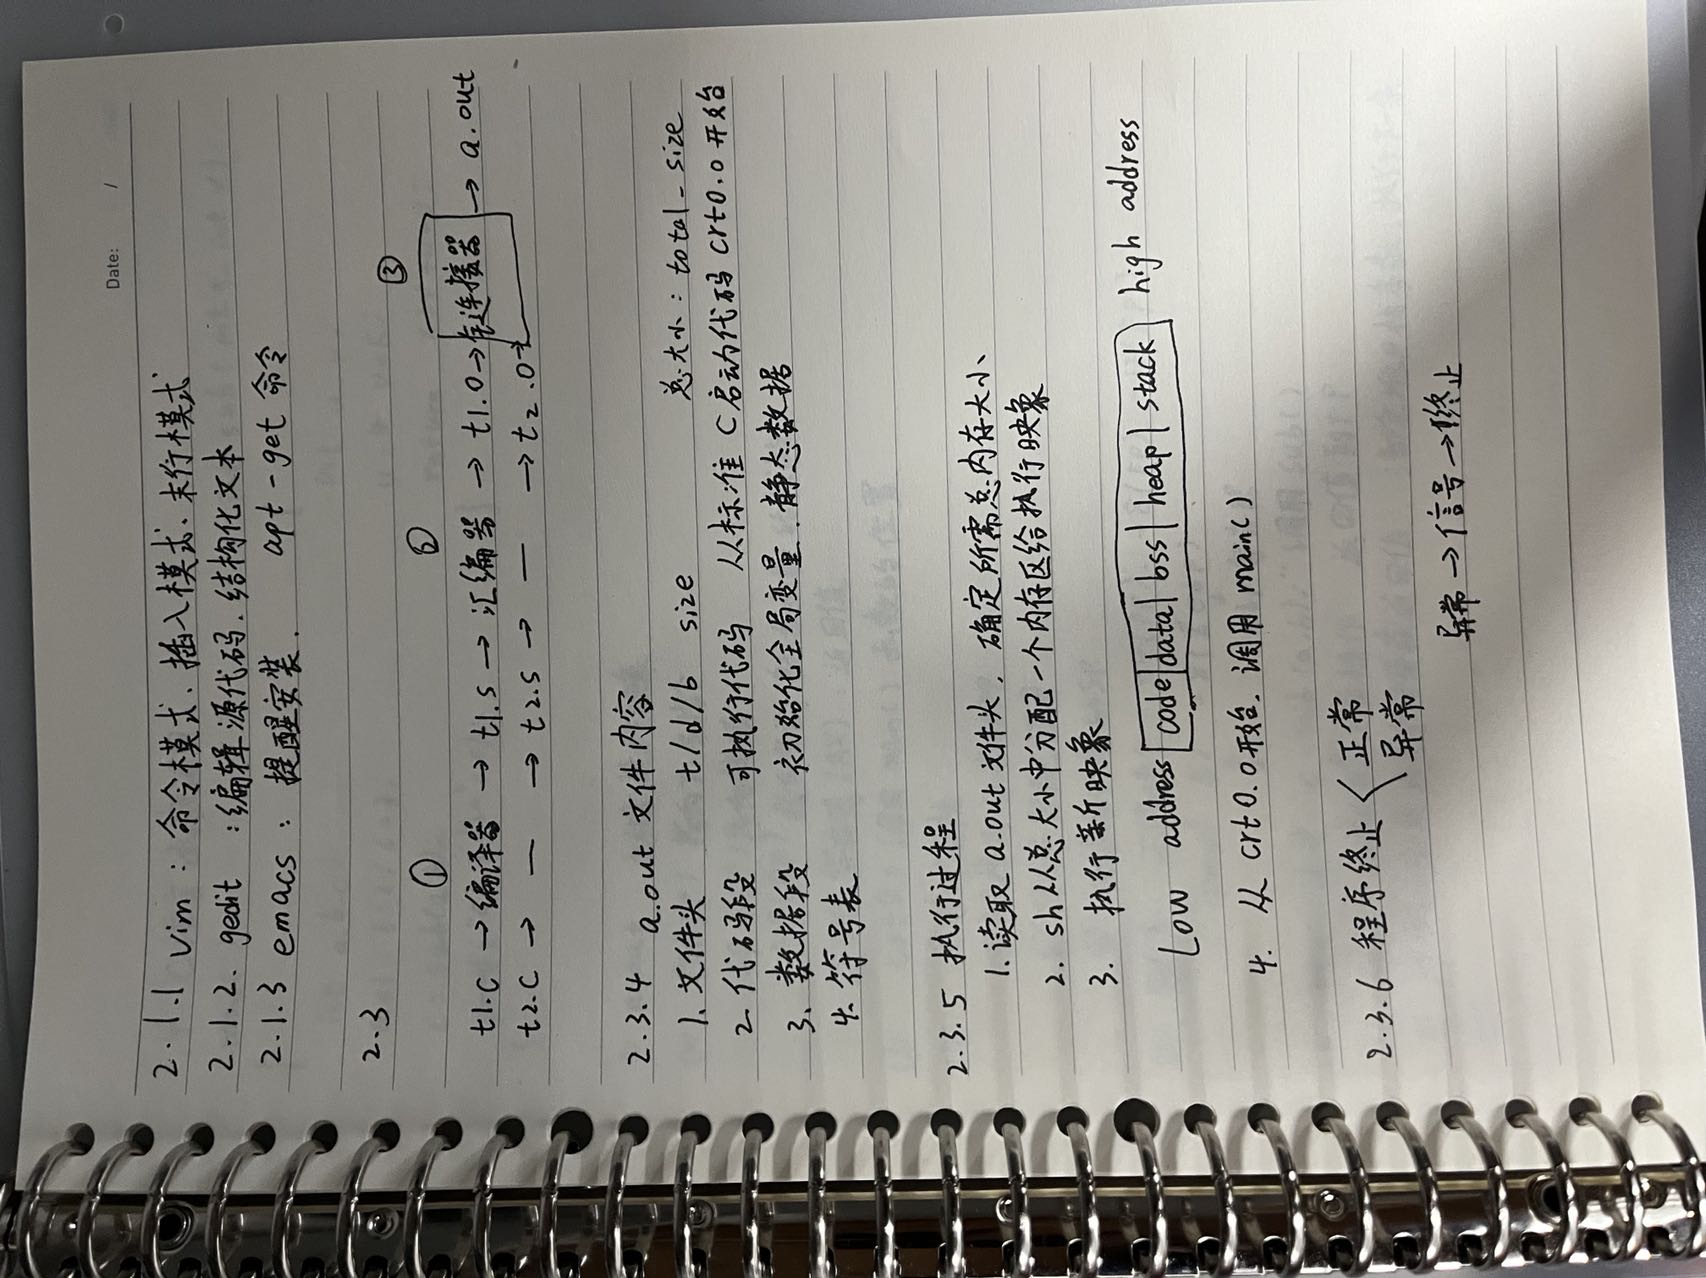 Date: /
2.1.1 vim：命令模式、插入模式、末行模式
2.1.2. gedit：编辑源代码、结构化文本
2.1.3 emacs：提醒安装. apt-get 命令
2.3
① ② ③
t1.c → 编译器 → t1.s → 汇编器 → t1.o → 链接器 → a.out
t2.c → — → t2.s → — → t2.o →
2.3.4 a.out 文件内容
1. 文件头 t/d/b size 总大小：total_size
2. 代码段 可执行代码 从标准C启动代码 crt0.o 开始
3. 数据段 初始化全局变量、静态数据
4. 符号表
2.3.5 执行过程
1. 读取 a.out 文件头，确定所需总内存大小、
2. sh从总大小中分配一个内存区给执行映象
3. 执行新映象
Low address |code|data|bss|heap|stack| high address
4. 从 crt0.o开始，调用 main()
2.3.6 程序终止 < 正常
异常
异常 → 信号 → 终止